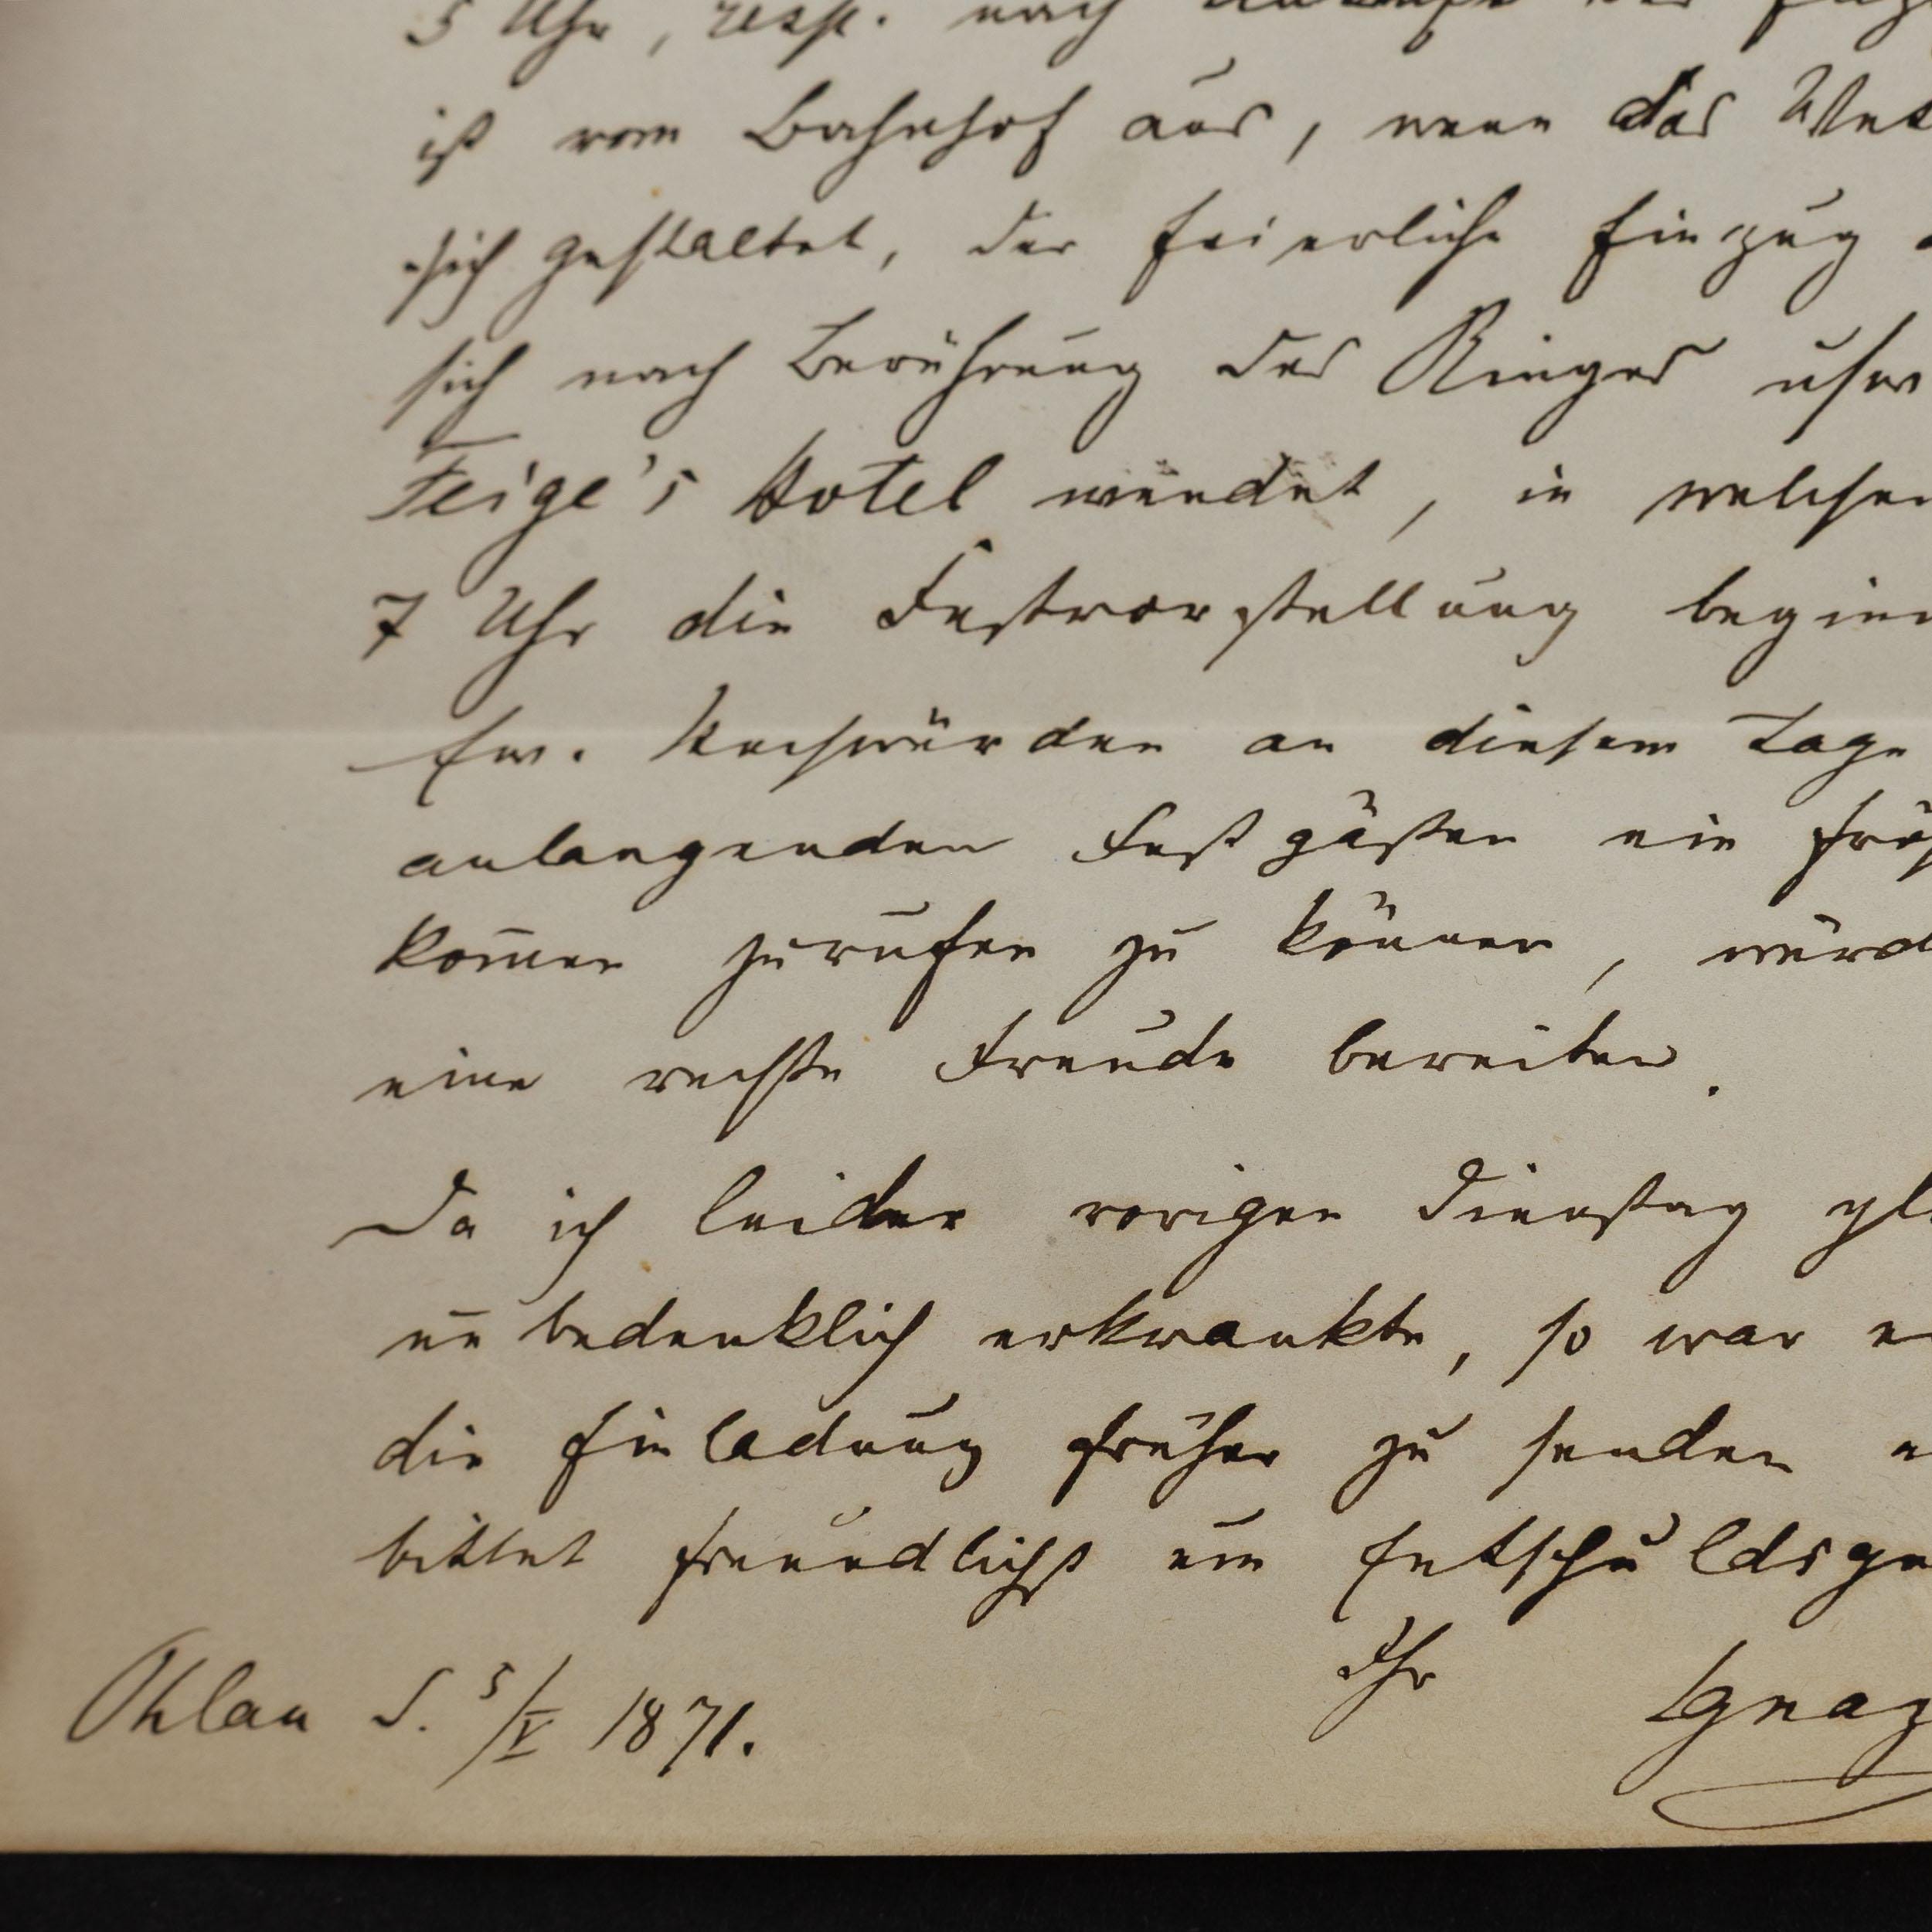 5 Uhr, resp. nach Ankunft der
ist vom Bahnhof aus, wenn das Wet
sich gestaltet, der feierliche Einzug
sich nach Berührung des Ringes usw
Feige's Hotel wendet, in welchem
7 Uhr die Festvorstellung begin
Ew. Hochwürden an diesem Tage
anlangenden Festgästen ein frö
kom̅en zurufen zu können, würd
eine rechte Freude bereiten.
Da ich leider vorigen Dienstag pl
un̅ bedenklich erkrankte, so war
die Einladung früher zu senden
bittet freundlichst um Entschuldige
Ihr Ignaz
Ohlau d. 5/V 1871.